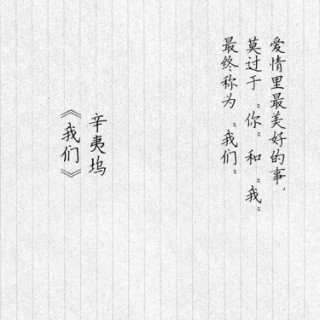 爱情里最美好的事，
莫过于“你”和“我”
最终称为“我们”。
辛夷坞
《我们》